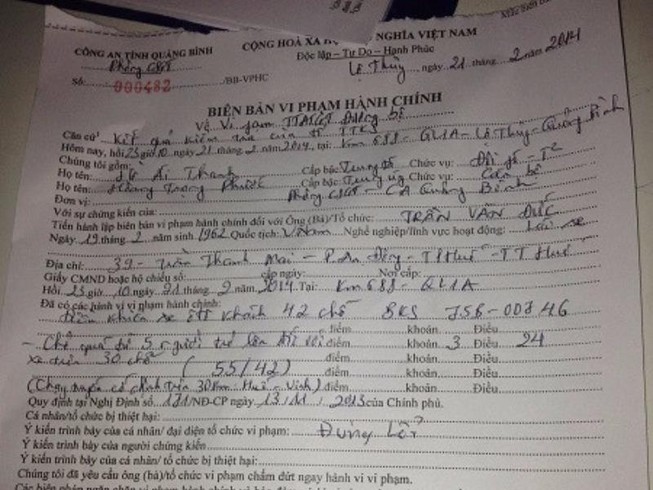 CÔNG AN TỈNH QUẢNG BÌNH
CỘNG HOÀ XÃ HỘI NGHĨA VIỆT NAM
Phòng CSGT
Độc lập – Tự Do – Hạnh Phúc
Số: 000482 /BB-VPHC
Lệ Thủy, ngày 21 tháng 2 năm 2014
BIÊN BẢN VI PHẠM HÀNH CHÍNH
Về Vi phạm TTATGT Đường bộ
Căn cứ: Kết quả kiểm tra của tổ TTKS
Hôm nay, hồi 23 giờ 10 ngày 21 tháng 2 năm 2014, tại: Km 688 - QL1A - Lệ Thủy - Quảng Bình
Chúng tôi gồm:
Họ tên: Ái Thanh Cấp bậc: Trung tá Chức vụ: Đội
Họ tên: Hoàng Trọng Phước Cấp bậc: Trung úy Chức vụ: Cán bộ
Đơn vị: Phòng CSGT - CA Quảng Bình
Với sự chứng kiến của:
Tiến hành lập biên bản vi phạm hành chính đối với Ông (Bà)/Tổ chức: TRẦN VĂN ĐỨC
Ngày 19 tháng 2 năm sinh 1962 Quốc tịch: V.Nam Nghề nghiệp/lĩnh vực hoạt động: Lái xe
Địa chỉ: 39 - Trần Thanh Mại - P. An Đông - TP Huế - TT Huế
Giấy CMND hoặc hộ chiếu số: cấp ngày: Nơi cấp:
Hồi 23 giờ 10 ngày 21 tháng 2 năm 2014. Tại: Km 688 - QL1A
Đã có các hành vi vi phạm hành chính:
Điều khiển xe ôtô khách 42 chỗ BKS 75B-00846
điểm khoản Điều
- Chở quá từ 5 người trở lên đối với điểm khoản 3 Điều 24
xe trên 30 chỗ điểm khoản Điều
(55/42) điểm khoản Điều
(Chạy tuyến cố định trên 30 Km: Huế - Vinh) điểm khoản Điều
Quy định tại Nghị Định số 171/NĐ-CP ngày 13/11/2013 của Chính phủ.
Cá nhân/tổ chức bị thiệt hại:
Ý kiến trình bày của cá nhân/ đại diện tổ chức vi phạm: Đúng lỗi
Ý kiến trình bày của người chứng kiến
Ý kiến trình bày của cá nhân/ tổ chức bị thiệt hại:
Chúng tôi đã yêu cầu ông (bà)/tổ chức vi phạm chấm dứt ngay hành vi vi phạm.